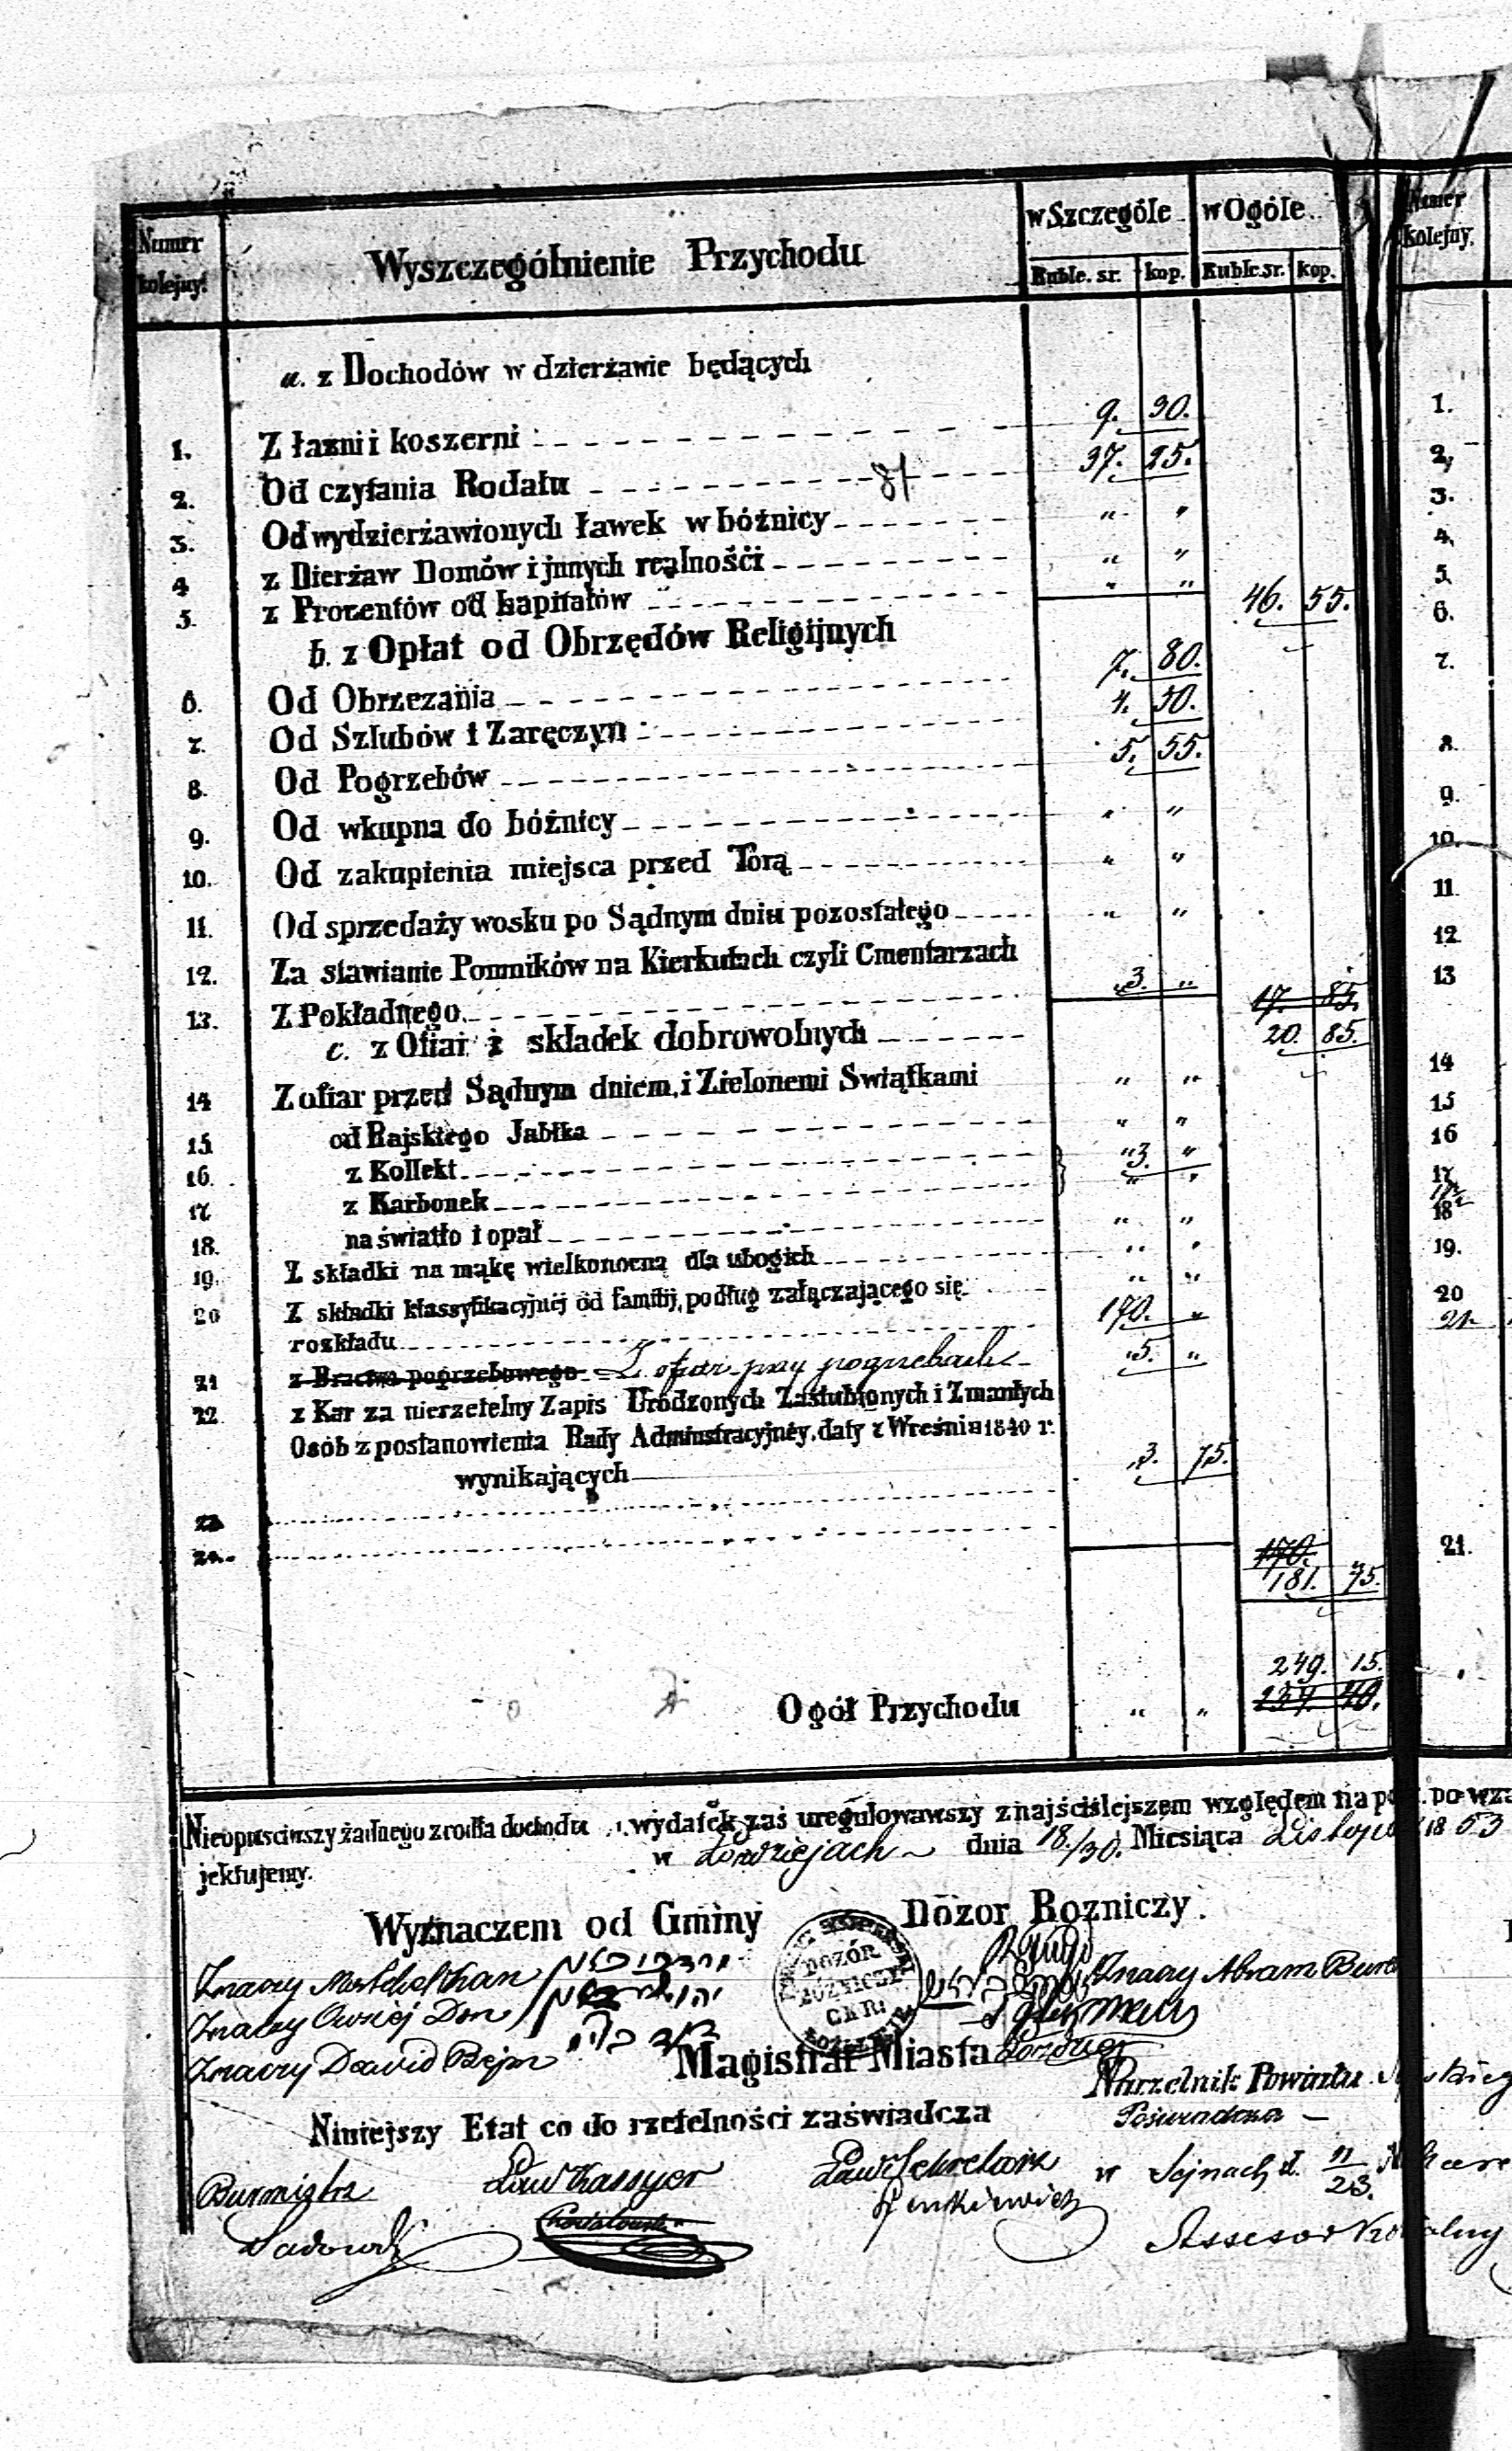 Numer kolejny. Wyszczególnienie Przychodu w Szczególe w Ogóle
Ruble. sr. kop. Ruble. sr. kop.
Numer kolejny.
a. z Dochodów w dzierżawie będących
1. Z łaźni i koszerni 9. 30. 1.
2. Od czytania Rodału 37. 25. 2.
3. Od wydzierżawionych ławek w bóżnicy „ „ 3.
4 z Dierżaw Domów i jnnych realnośći „ „ 4.
5. z Procentów od kapitałów „ „ 46. 55. 5.
b. z Opłat od Obrzędów Religijnych 6.
6. Od Obrzezania 7. 80. 7.
7. Od Szlubów i Zaręczyn 4. 50.
8. Od Pogrzebów 5. 55. 8.
9. Od wkupna do bóżnicy „ „ 9.
10. Od zakupienia miejsca przed Torą „ „ 10.
11. Od sprzedaży wosku po Sądnym dniu pozostałego „ „ 11.
12. Za stawianie Pomników na Kierkutach czyli Cmentarzach 12
13. Z Pokładnego „3. „ 17. 85. 13
c. z Ofiar i składek dobrowolnych 20. 85.
14 Z ofiar przed Sądnym dniem, i Zielonemi Swiątkami „ „ 14
15 od Rajskiego Jabłka „ „ 15
16. z Kollekt „3. „ 16
17 z Karbonek „ „ 17
18. na światło i opał „ „ 18
19. Z składki na mąkę wielkonocną dla ubogich „ „ 19.
20 Z składki klassyfikacyjnéj od familij, podług załączającego się „ „ 20
rozkładu 170. „ 21.
21 z Bractwa pogrzebowego Z ofiar przy pogrzebach „5. „
22 z Kar za nierzetelny Zapis Urodzonych Zaślubionych i Zmarłych
Osób z postanowienia Rady Adminstracyjnéy, daty z Wreśnia 1840 r.
wynikających „3. 75.
23
24. 170. 21.
181. 75.
249. 15.
Ogół Przychodu „ „ 234. 40.
Nieopuściwszy żadnego zrodła dochodu i wydatek zaś uregulowawszy z najściślejszem względem na po
jektujemy. w Łoździejach dnia 18./30. Miesiąca Listopad 18 53
Wyznaczem od Gminy Dozor Bozniczy.
Znaczy Abram
Znaczy Owsiéj Don
Znaczy Dawid
DOZÓR
BÓŻNICZY
OKR:
Magistrat Miasta Łoździej
Naczelnik Powiatu
Niniejszy Etat co do rzetelności zaświadcza Poświadcza
Burmistrz Ław Kassyer Ław Sekretarz w Sejnach d. 11/23.
Sadowski
Assesor